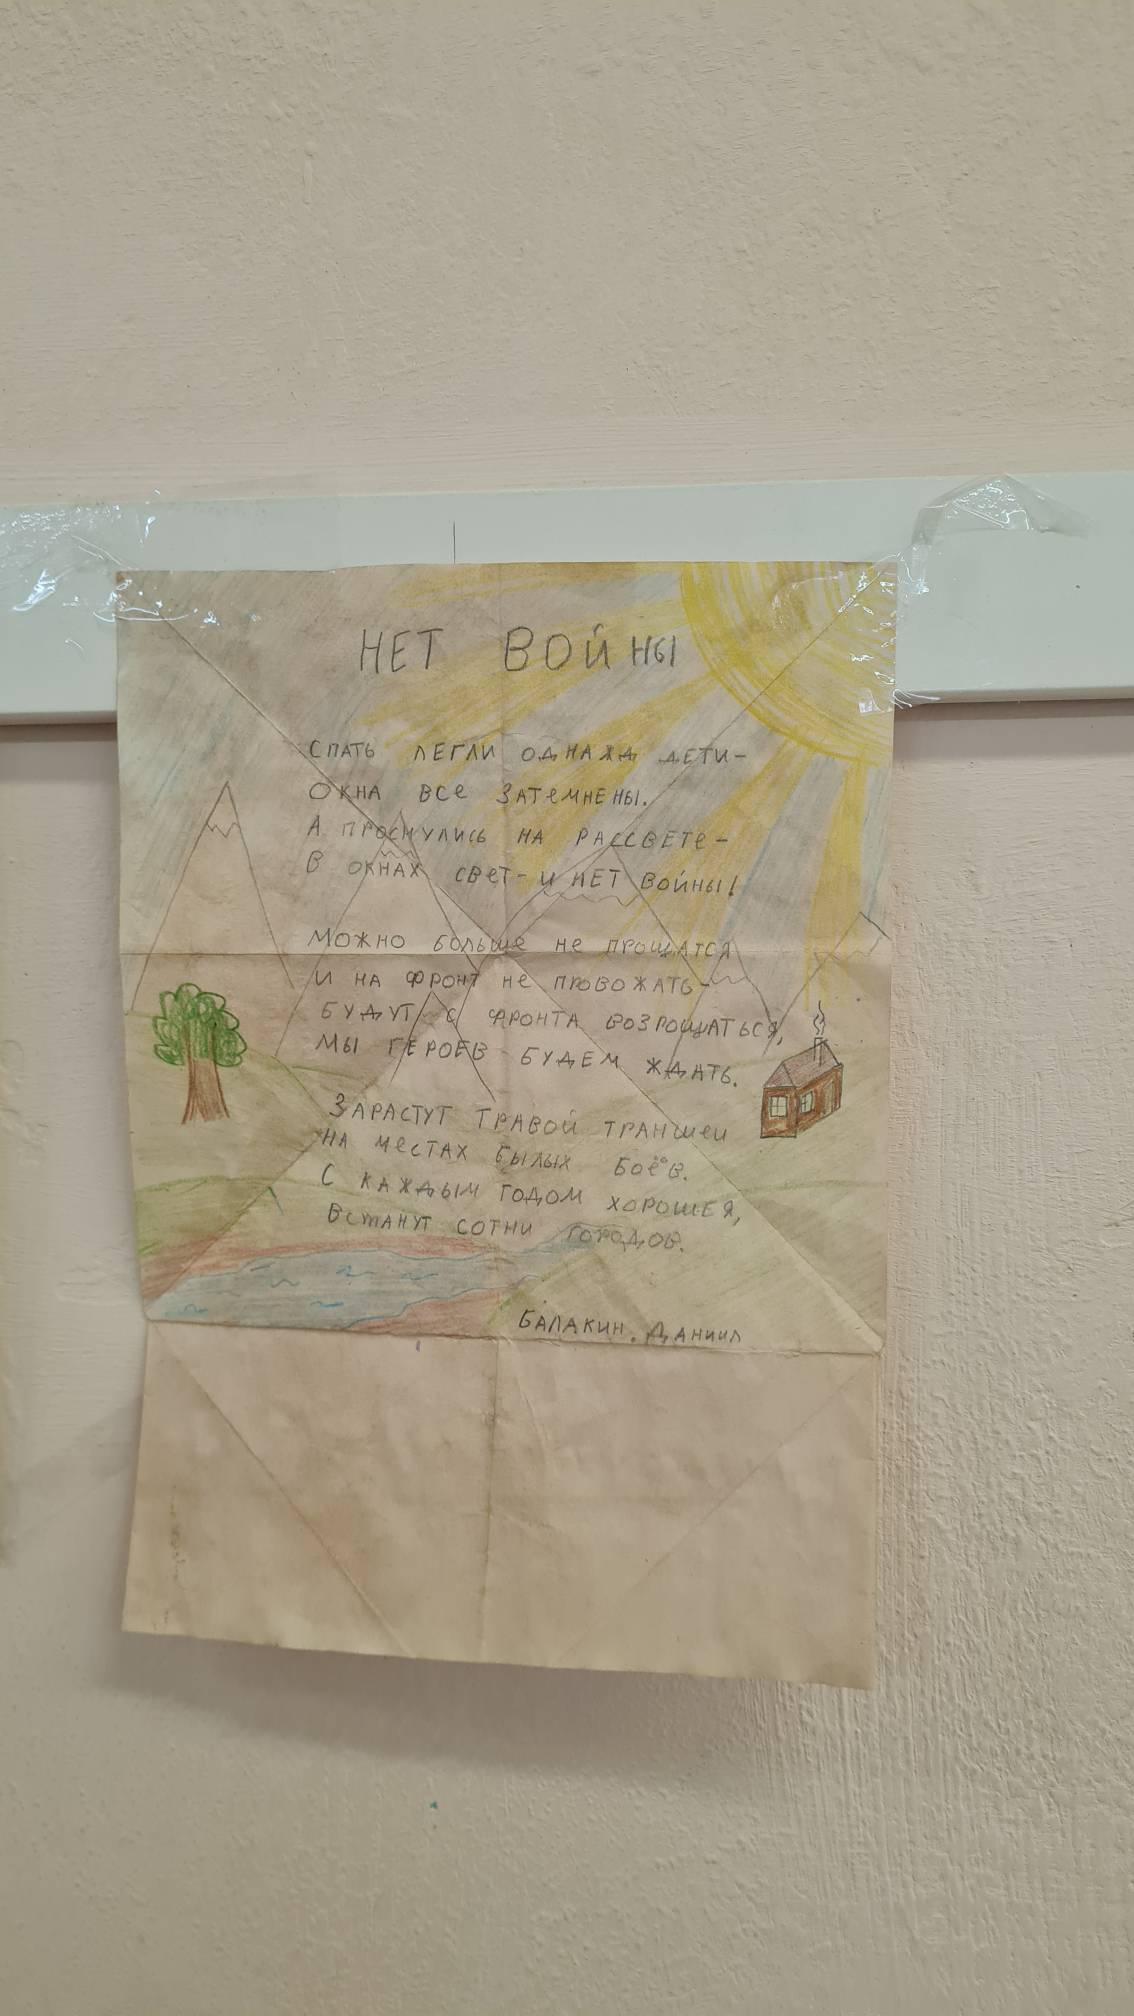 НЕТ ВОЙНЫ
СПАТЬ ЛЕГЛИ ОДНАЖД ДЕТИ-
ОКНА ВСЕ ЗАТЕМНЕНЫ.
А ПРОСНУЛИСЬ НА РАССВЕТЕ-
В ОКНАХ СВЕТ- И НЕТ ВОЙНЫ!
МОЖНО БОЛЬШЕ НЕ ПРОЩАТСЯ
И НА ФРОНТ НЕ ПРОВОЖАТЬ-
БУДУТ С ФРОНТА ВОЗРОЩАТЬСЯ,
МЫ ГЕРОЕВ БУДЕМ ЖДАТЬ.
ЗАРАСТУТ ТРАВОЙ ТРАНШЕИ
НА МЕСТАХ БЫЛЫХ БОЁВ.
С КАЖДЫМ ГОДОМ ХОРОШЕЯ,
ВСТАНУТ СОТНИ ГОРОДОВ.
БАЛАКИН. ДАНИИЛ